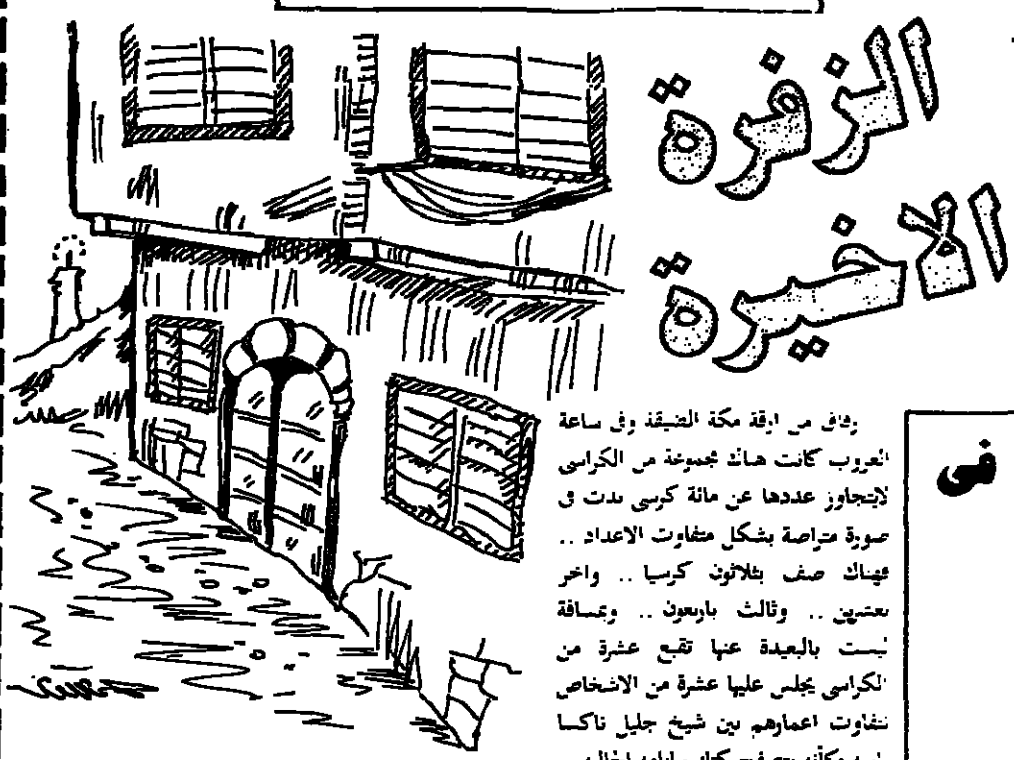 الزفرة
الاخيرة
فى
رقاق من ازقة مكة الضيقة وفى ساعة
الغروب كانت هناك مجموعة من الكراسى
لايتجاوز عددها عن مائة كرسى بدت فى
صورة متراصة بشكل متفاوت الاعداد ..
فهناك صف بثلاثون كرسيا .. واخر
بعشرين .. وثالث باربعون .. وبمسافة
ليست بالبعيدة عنها تقبع عشرة من
الكراسى يجلس عليها عشرة من الاشخاص
تتفاوت اعمارهم بين شيخ جليل ناكسا